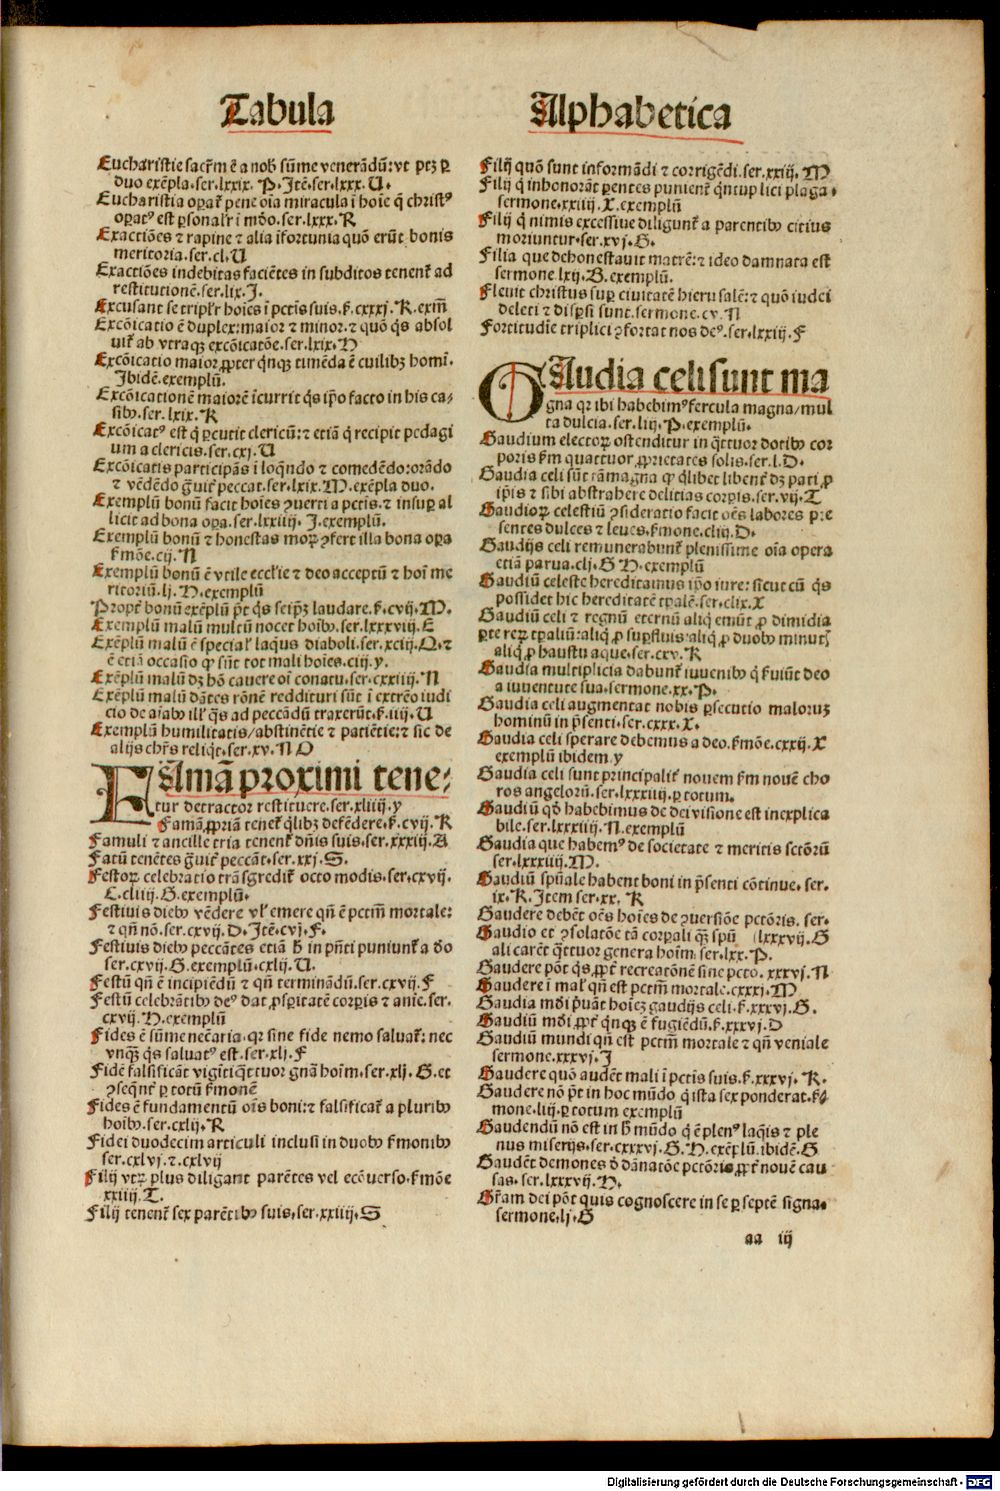 Tabula Alphabetica
Eucharistie sacr̄m ē a nob̄ sūme venerādū: vt ptꝫ ꝑ
duo exēpla. ser. lxxix. P. Itē. ser. lxxx. U.
Eucharistia oꝑat᷑ pene oīa miracula ī hoīe q̄ christꝰ
oꝑatꝰ est ꝑsonalr̄ ī mūdo. ser. lxxx. R
Exactiōes ⁊ rapine ⁊ alia īfortunia quō erūt bonis
meritoria. ser. cl. U
Exactiōes indebitas faciētes in subditos tenent᷑ ad
restitutionē. ser. lix. I.
Excusant se triplr̄ hoīes ī pctīs suis. ẜ. cxxxj. R. exm̄
Excōicatio ē duplex: maior ⁊ minor. ⁊ quō q̄s absol
uit᷑ ab vtraqꝫ excōicatōe. ser. lxix. H
Excōicatio maior ꝓpter qͥnqꝫ timēda ē cuilibꝫ homī.
Ibidē. exemplū.
Excōicationē maiorē īcurrit q̄s ip̄o facto in his ca⸗
sibꝰ. ser. lxix. R
Excōicatꝰ est q̄ ꝑcutit clericū: ⁊ etiā q̄ recipit pedagi
um a clericis. ser. cxj. U
Excōicatis participās ī loquēdo ⁊ comedēdo: orādo
⁊ vēdēdo g̈uit᷑ peccat. ser. lxix. M. exēpla duo.
Exemplū bonū facit hoīes ꝯuerti a pctīs. ⁊ insuꝑ al
licit ad bona oꝑa. ser. lxxiiij. I. exemplū.
Exemplū bonū ⁊ honestas moꝝ ꝯfert illa bona oꝑa
ẜmōe. cij. N
Exemplū bonū ē vtile eccl̄ie ⁊ deo acceptū ⁊ hoī me
ritoriū. lj. H. exemplū
Propt᷑ bonū exēplū pōt q̄s seipꝫ laudare. ẜ. cvij. M.
Exemplū malū multū nocet hoībꝰ. ser. lxxxviij. E
Exēplū malū ē special᷑ laqͥus diaboli. ser. xciij. Q. ⁊
ē etiā occasio ꝙ sūt tot mali hoīes. ciij. y.
Exēplū malū dꝫ hō cauere oī conatu. ser. cxxiiij. N
Exēplū malū dātes rōnē reddituri sūt ī extrēo iudi
cio de aīabꝰ ill᷑ q̄s ad peccādū traxerūt. ẜ. iiij. U
Exemplū humilitatis/ abstinētie ⁊ patiētie: ⁊ sic de
alijs chr̄s reliqͥt. ser. xv. N O
FAmā proximi tene⸗
tur detractor restituere. ser. xliiij. y
Famā ꝓpriā tenet᷑ qͥlibꝫ defēdere. ẜ. cvij. R
Famuli ⁊ ancille tria tenent᷑ dn̄is suis. ser. xxxiij. A
Fatū tenētes g̈uit᷑ peccāt. ser. xxj. S.
Festoꝝ celebratio trāsgredit᷑ octo modis. ser. cxvij.
C. cliiij. G. exemplū.
Festiuis diebꝰ vēdere vl᷑ emere qn̄ ē pctm̄ mortale:
⁊ qn̄ nō. ser. cxvij. D. Itē. cvj. F.
Festiuis diebꝰ peccātes etiā ħ in pn̄ti puniunt᷑ a dōo
ser. cxvij. G. exemplū. cxlij. U.
Festū qn̄ ē incipiēdū ⁊ qn̄ terminādū. ser. cxvij. F
Festū celebrātibꝰ deꝰ dat ꝓsꝑitatē corꝑis ⁊ aīe. ser.
cxvij. H. exemplū
Fides ē sūme necēaria. qr sine fide nemo saluat᷑: nec
vnqꝫ q̄s saluatꝰ est. ser. xlj. F
Fidē falsificāt vigītiqͣttuor gn̄a hoīm. ser. xlj. G. et
ꝯseqn̄t᷑ ꝑ totū ẜmonē
Fides ē fundamentū oīs boni: ⁊ falsificat᷑ a pluribꝰ
hoībꝰ. ser. cxlij. R
Fidei duodecim articuli inclusi in duobꝰ ẜmonibꝰ
ser. cxlvj. ⁊. cxlvij
Filij vtꝝ plus diligant parētes vel ecōuerso. ẜmōe
xxiiij. T.
Filij tenent᷑ sex parētibꝰ suis. ser. xxiiij. S
Filij quō sunt informādi ⁊ corrigēdi. ser. xxiij. M
Filij q̄ inhonorāt ꝑentes punient᷑ qͥntuplici plaga.
sermone. xxiiij. X. exemplū
Filij q̄ nimis excessiue diligunt᷑ a parentibꝰ citius
moriuntur. ser. xvj. G.
Filia que dehonestauit matrē: ⁊ ideo damnata est
sermone. lxij. B. exemplū.
Fleuit christus suꝑ ciuitatē hierusalē: ⁊ quō iudei
deleti ⁊ disꝑsi sunt. sermone. cv. N
Fortitudīe triplici ꝯfortat nos deꝰ. ser. lxxiij. F
GAudia celi sunt ma
gna qr ibi habebimꝰ fercula magna/ mul
ta dulcia. ser. liij. P. exemplū.
Gaudium electoꝝ ostenditur in qͣttuor dotibꝰ cor
poris ẜm quattuor ꝓprietates solis. ser. l. D.
Gaudia celi sūt tāmagna ꝙ qͥlibet libent᷑ dꝫ pati ꝓ
ip̄is ⁊ sibi abstrahere delicias corꝑis. ser. vij. T
Gaudioꝝ celestiū ꝯsideratio facit oēs labores pre
sentes dulces ⁊ leues. ẜmone. cliij. D.
Gaudijs celi remunerabunt᷑ plenissime oīa opera
etiā parua. clj. G H. exemplū
Gaudiū celeste hereditamus ip̄o iure: sicut cū q̄s
possidet hic hereditatē tꝑalē. ser. clix. X
Gaudiū celi ⁊ regnū eternū aliqͥ emūt ꝓ dimidia
ꝑte reꝝ tꝑaliū: aliqͥ ꝓ suꝑfluis: aliqͥ ꝓ duobꝰ minut᷑
aliqͥ ꝓ haustu aque. ser. cxv. R
Gaudia multiplicia dabunt᷑ iuuenibꝰ q̄ ẜuiūt deo
a iuuentute sua. sermone. xx. P.
Gaudia celi augmentat nobis ꝑsecutio maloruꝫ
hominū in pn̄senti. ser. cxxx. X.
Gaudia celi sperare debemus a deo. ẜmōe. cxxij. X
exemplū ibidem y
Gaudia celi sunt principalit᷑ nouem ẜm nouē cho
ros angelorū. ser. lxxxiiij. ꝑ totum.
Gaudiū qd̄ habebimus de dei visione est inexplica
bile. ser. lxxxiiij. N. exemplū
Gaudia que habemꝰ de societate ⁊ meritis sctōrū
ser. lxxxiiij. M.
Gaudiū spūale habent boni in p̄senti cōtinue. ser.
ix. R. Item ser. xx. R
Gaudere debēt oēs hoīes de ꝯuersiōe pctōris. ser.
Gaudio et ꝯsolatōe tā corꝑali qͣꝫ spū (lxxxvij. G
ali carēt qͣttuor genera hoīm. ser. lxx. P.
Gaudere pōt q̄s ꝓpt᷑ recreatōnē sine pctō. xxxvj. N
Gaudere ī mal᷑ qn̄ est pctm̄ mortale. cxxxj. M
Gaudia mūdi p̄uāt hoīeꝫ gaudijs celi. ẜ. xxxvj. G.
Gaudiū mūdi ꝓpt᷑ qͥnqꝫ ē fugiēdū. ẜ. xxxvj. D
Gaudiū mundi qn̄ est pctm̄ mortale ⁊ qn̄ veniale
sermone. xxxvj. I
Gaudere quō audēt mali ī pctīs suis. ẜ. xxxvj. R.
Gaudere nō pōt in hoc mūdo q̄ ista sex ponderat. ẜ
mone. liij. ꝑ totum exemplū
Gaudendū nō est in ħ mūdo q̄ ē plenꝰ laqͥis ⁊ ple
nus miserijs. ser. cxxxvj. G. H. exēplū. ibidē. G
Gaudēt demones d̄ dānatōe pctōris ꝓpt᷑ nouē cau
sas. ser. lxxxvij. H.
Gr̄am dei pōt quis cognoscere in se ꝑ septē signa.
sermone. lj. G
aa iij
Digitalisierung gefördert durch die Deutsche Forschungsgemeinschaft - DFG